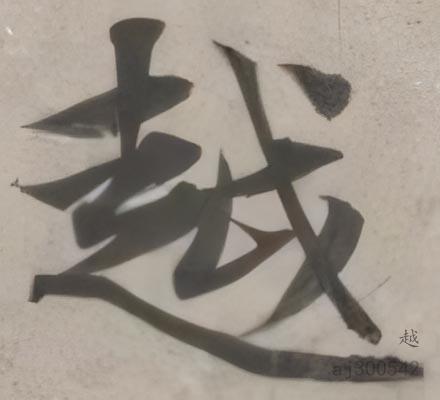 越
越
aj300542